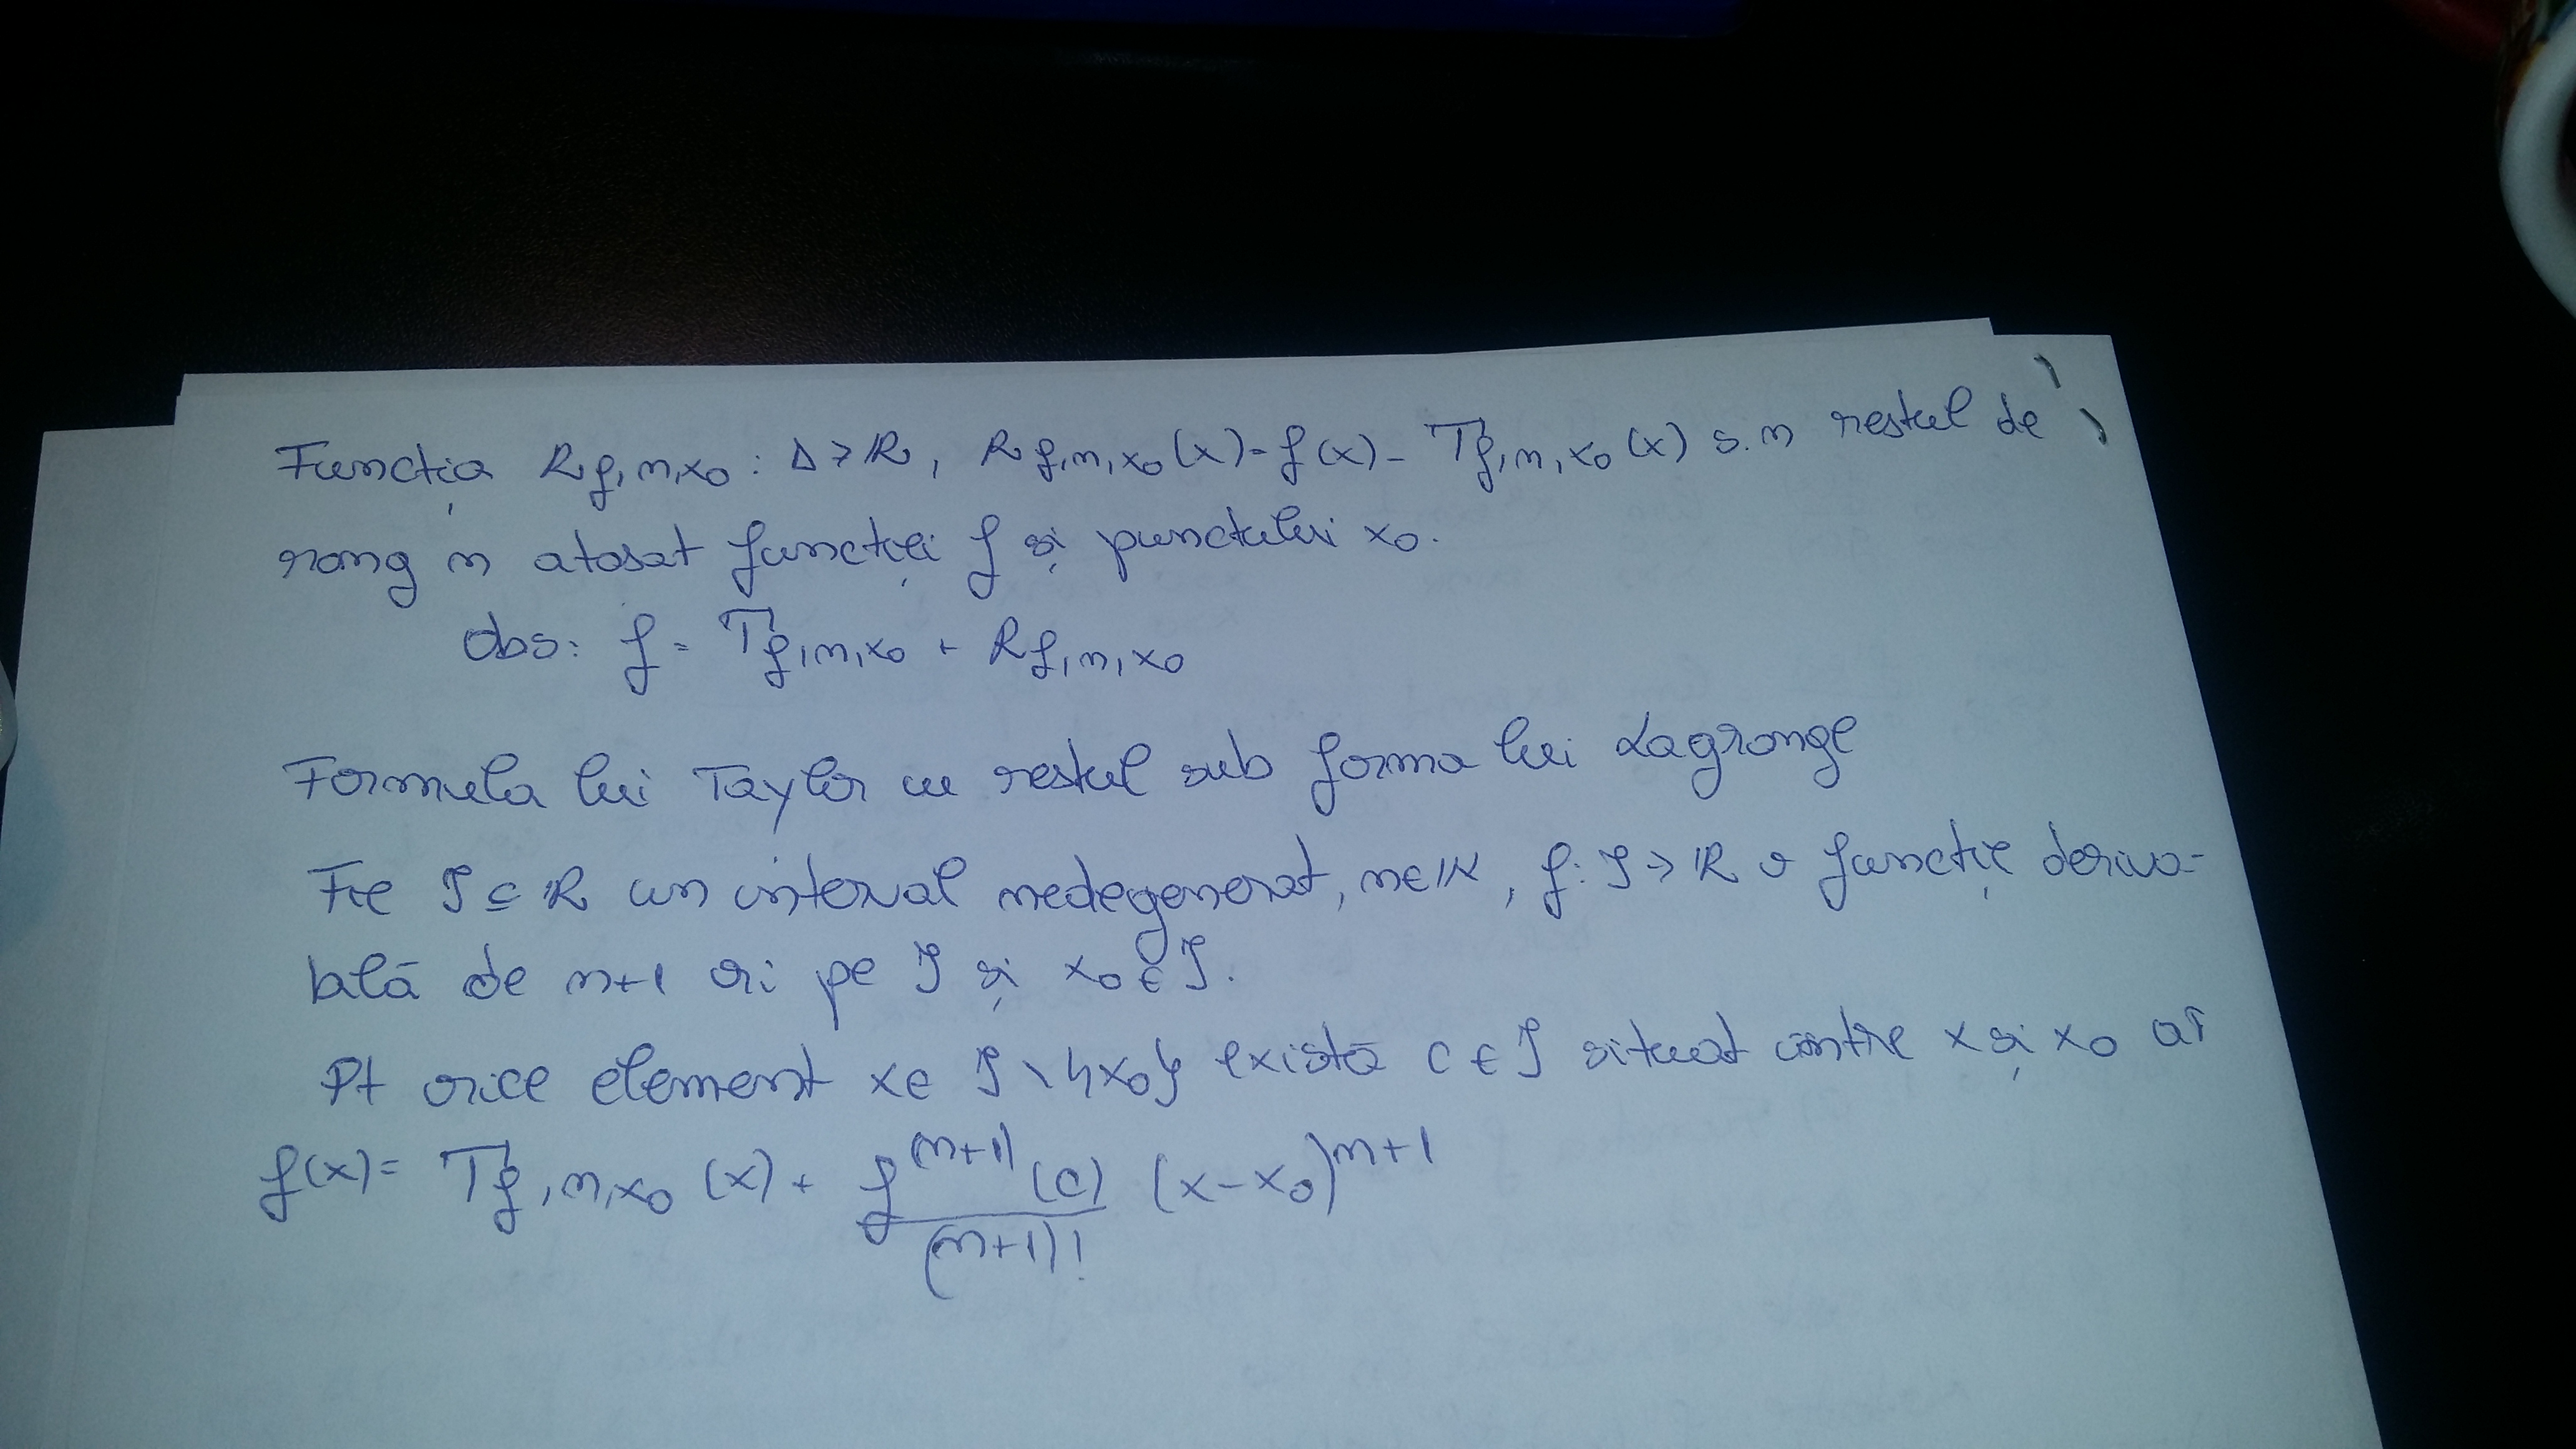 Funcția R f,n,x₀ : D → ℝ, R f,n,x₀ (x) = f(x) - T f,n,x₀ (x) s.n restul de
rang n atasat funcției f și punctului x₀.
Obs: f = T f,n,x₀ + R f,n,x₀
Formula lui Taylor cu restul sub forma lui Lagrange
Fie J ⊆ ℝ un interval nedegenerat, n∈ℕ, f: J → ℝ o funcție deriva-
bilă de n+1 ori pe J și x₀ ∈ J.
Pt orice element x∈ J \ {x₀} există c ∈ J situat între x și x₀ aî
f(x) = T f,n,x₀ (x) + f^(n+1) (c) / (n+1)! (x-x₀)^n+1